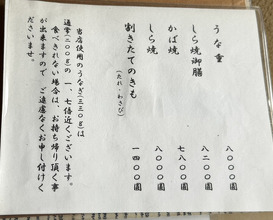 うな重　八〇〇〇圓
しら焼御膳　八二〇〇圓
かば焼　七八〇〇圓
しら焼　八〇〇〇圓
割きたてのきも　一四〇〇圓
（たれ・わさび）
当店使用のうなぎ(三三〇g)は
通常(二〇〇g)の一、七倍近くございます。
食べきれない場合は、お持ち帰り頂く事
が出来ますので、ご遠慮なくお申し付けく
ださいませ。